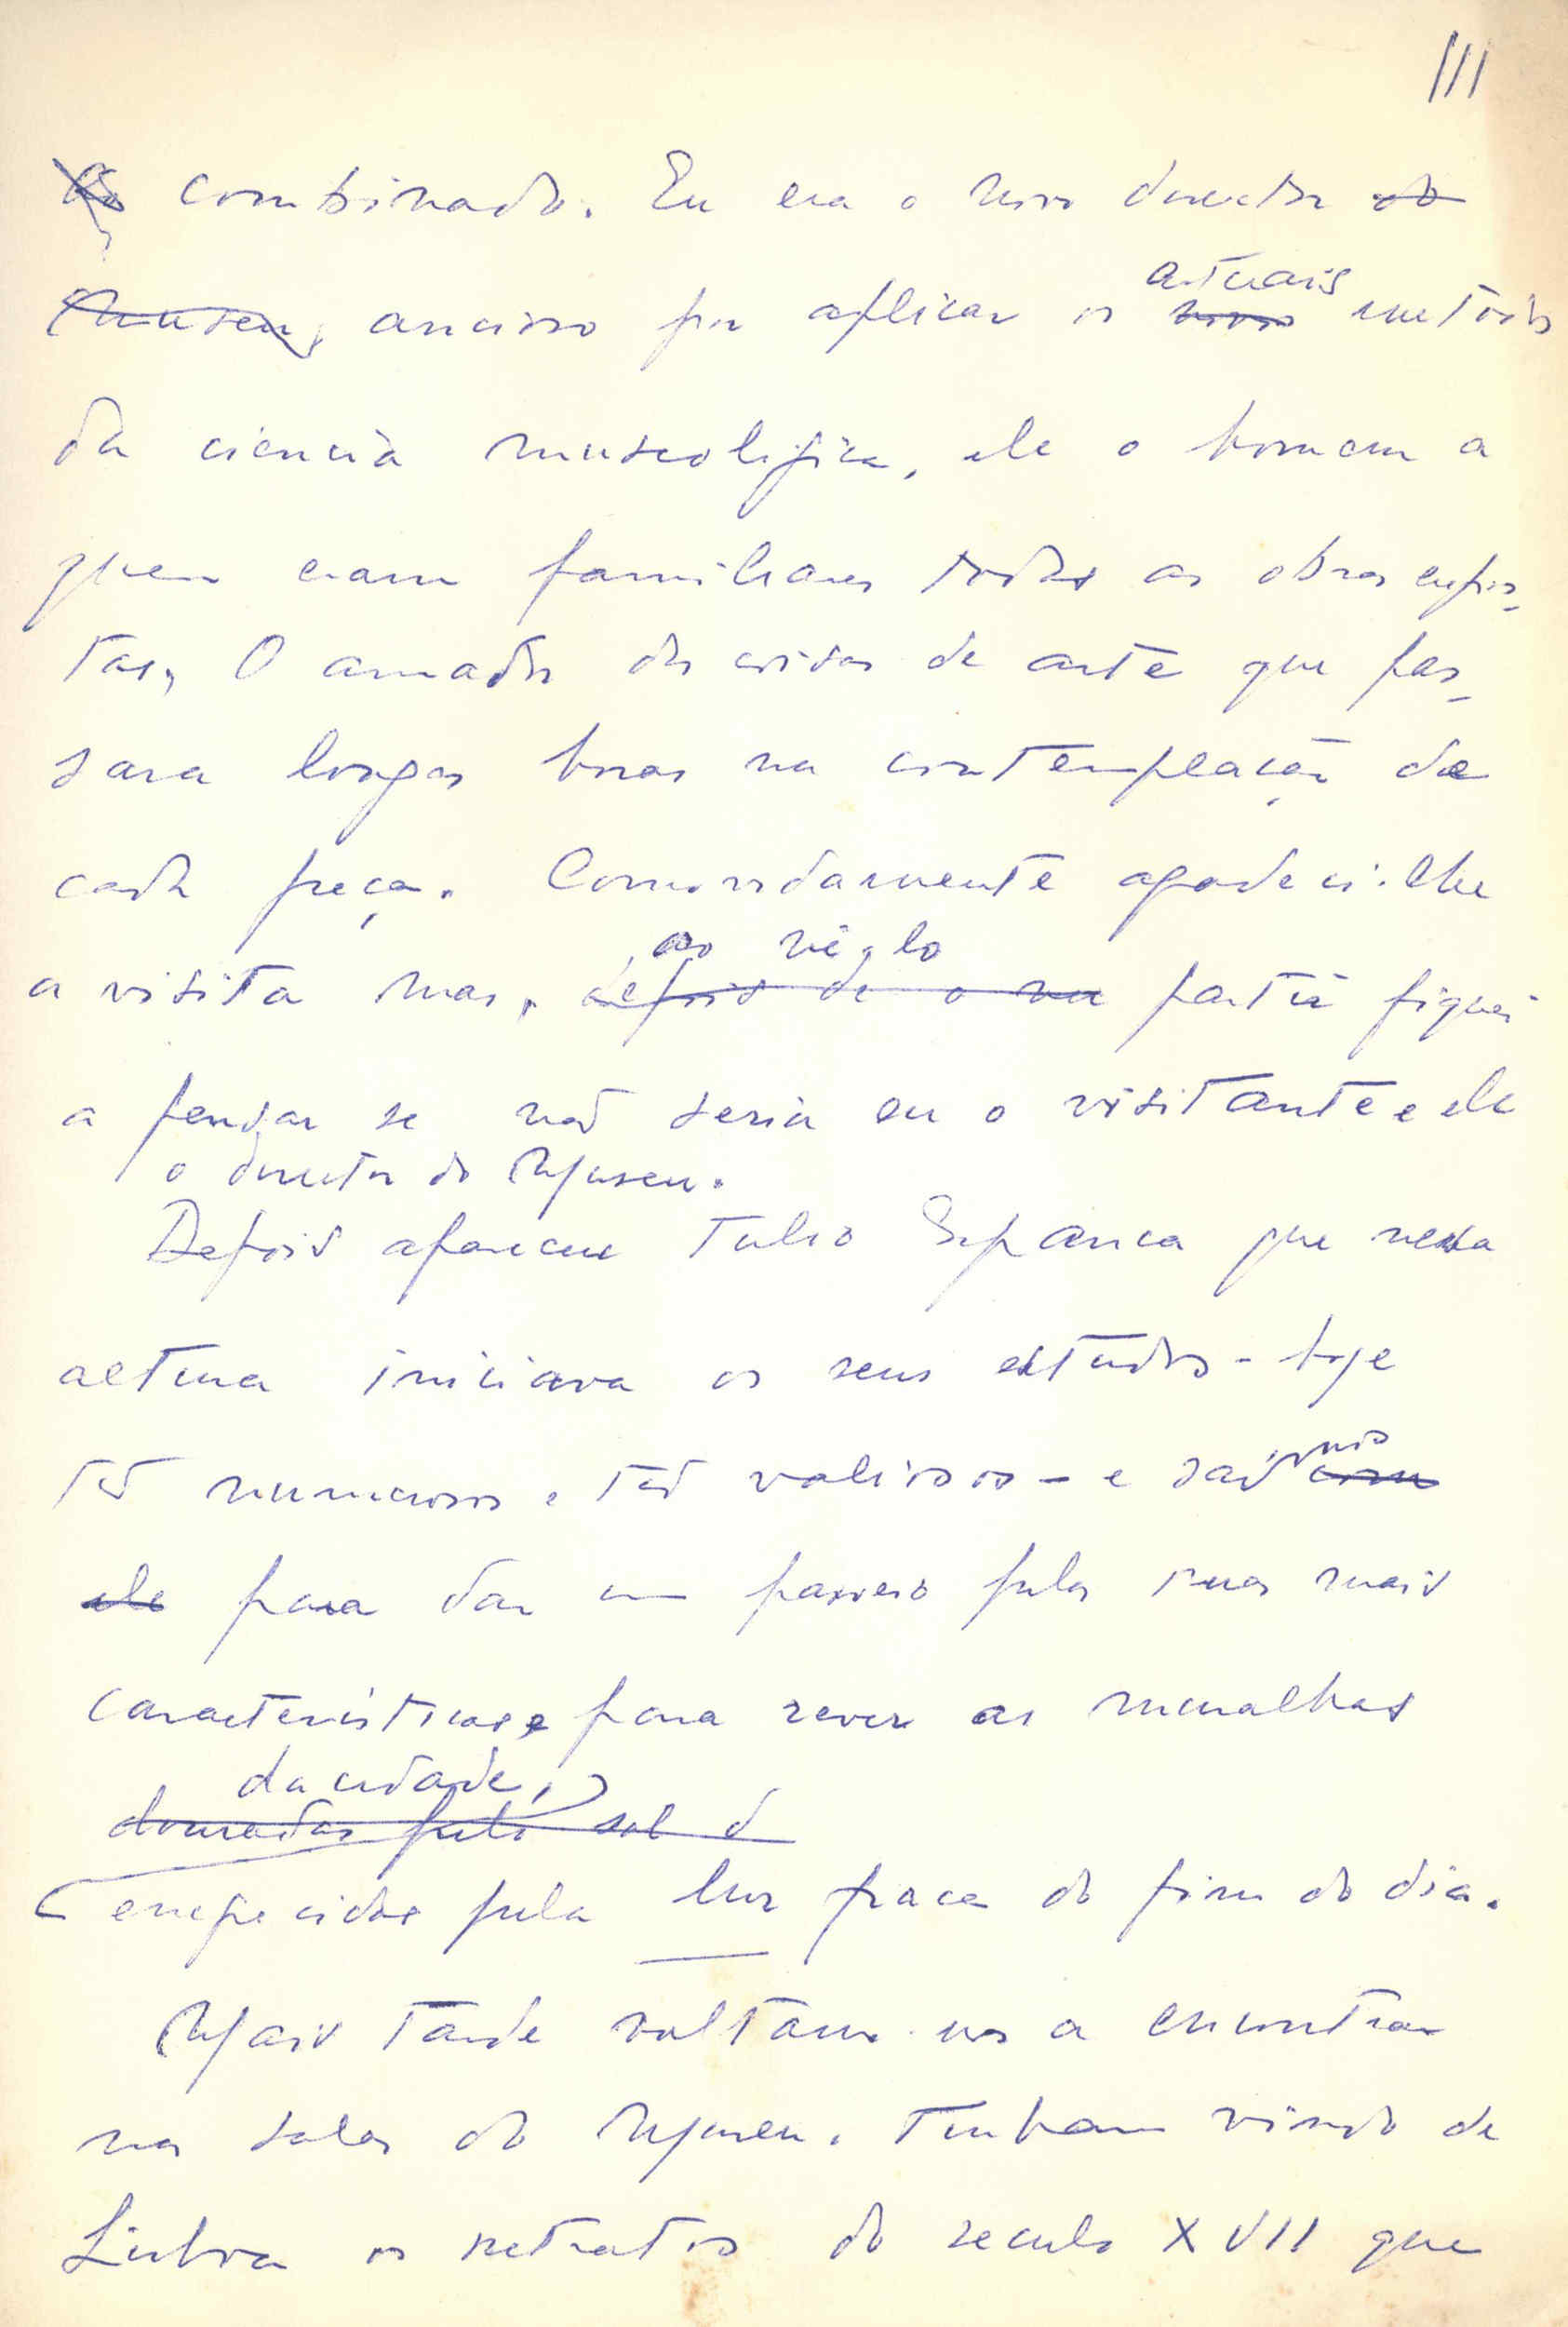 III
combinado. Eu era o novo director do
Museu, ancioso por aplicar os atuais novos metodos
da ciencia museologica, ele o homem a
quem eram familiares todas as obras expos-
tas, O amador das coisas de arte que pas-
sara longas horas na contemplação de
cada peça. Comovidamente agradeci-lhe
ao vê-lo
a visita mas, depois de o ver partir fiquei
a pensar se não seria eu o visitante e ele
o director do Museu.
Depois apareceu Tulio Espanca que nessa
altura iniciava os seus estudos - hoje
tão numerosos e tão valiosos - e saimos com
ele para dar um passeio pelas ruas mais
caracteristicas e para rever as muralhas
da cidade,
douradas pelo sol d
enegrecidas pela luz fraca do fim do dia.
Mais tarde voltamo-nos a encontrar
nas salas do Museu. Tinham vindo de
Lisboa os retratos do seculo XVII que